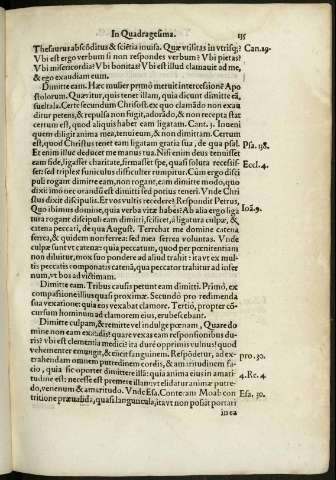 In Quadragesima. 135
Thesaurus abscõditus & sciẽtia inuisa. Quæ vtilitas in vtrisq;? Can. 19.
Vbi est ergo verbum si non respondes verbum? Vbi pietas?
Vbi misericordia? Vbi bonitas? Vbi est illud clamauit ad me,
& ego exaudiam eum.
Dimitte eam. Hæc mulier primò meruit intercessionẽ Apo
stolorum. Quæritur, quis tenet illam, quia dicunt dimitte eã,
Certe secundum Chrisost. ex quo clamãdo non exau
ditur petens, & repulsa non fugit, adorãdo, & non recepta stat
certum est, quod aliquis habet eam ligatam. Cant. 3. Inueni
quem diligit anima mea, tenui eum, & non dimittam. Certum
est, quod Christus tenet eam ligatam gratia sua, de qua psal. Psa. 118.
Et enim illuc deducet me manus tua. Nisi enim deus tenuisset
eam fide, ligasset charitate, firmasset spe, quasi soluta recessis- Eccl. 4.
set: sed triplex funiculus difficulter rumpitur. Cùm ergo disci
puli rogant dimitte eam, non rogant, eam dimitte modo, quo
dixit imò ore orandũ est dimitti sed potius teneri. Vnde Chri
stus dixit discipulis. Et vos vultis recedere? Respondit Petrus,
Quò ibimus domine, quia verba vitæ habes? Ab alia ergo liga Ioã. 9.
tura rogant discipuli eam dimitti, scilicet, à ligatura culpæ, &
catena peccati, de qua August. Terrebat me domine catena
ferrea, & quidem non ferrea: sed mea ferrea voluntas. Vnde
culpæ sunt vt catenæ: quia peccatum, quod per pœnitentiam
non diluitur, mox suo pondere ad aliud trahit: ita vt ex mul-
tis peccatis componatur catenã, qua peccator trahitur ad infer
num, vt bos ad victimam.
Dimitte eam. Tribus causis petunt eam dimitti. Primò, ex
compassione illius quasi proximæ. Secundo pro redimenda
sua vexatione: quia eos vexabat clamore. Tertiò, propter cõ-
cursum hominum ad clamorem eius, erubescebant.
Dimitte culpam, & remitte vel indulge pœnam, Quare do
mine non eam exaudis? quare vexas eam responsionibus du-
ris? vbi est clementia medici? ita durè opprimis vulnus? quod
vehementer emungit, & elicit sanguinem. Respõdetur, ad ex- pro. 30.
trahendam omnem putredinem cordis, & amaritudinem fa-
cio, quia sic oportet dimittere illã: quia anima eius in amari 4. Re. 4.
tudine est: necesse est premere illam: vt elidatur anima putre-
do, venenum & amaritudo. Vnde Esa. Conteram Moab con- Esa. 30.
tritione præualida, quasi languncula, ita vt non possit portari
in ea